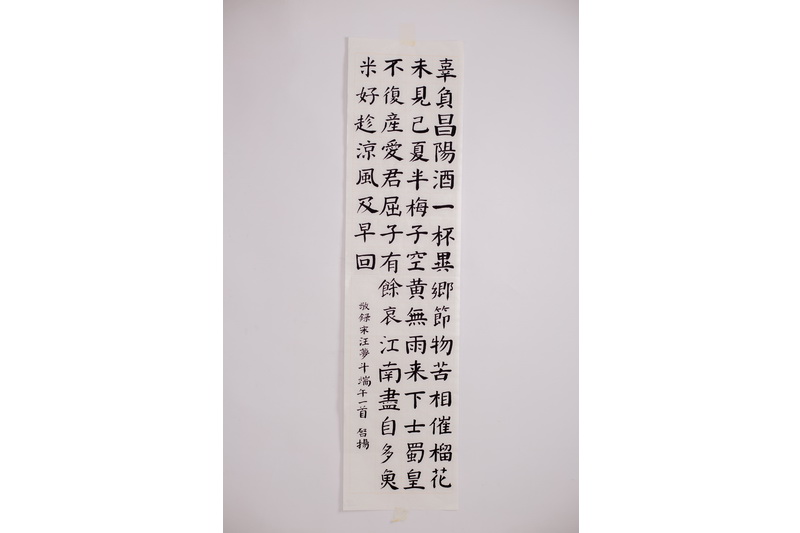 辜負昌陽酒一杯異鄉節物苦相催榴花
未見己夏半梅子空黄無雨来下士蜀皇
不復産愛君屈子有餘哀江南盡自多奐
米好趁涼風及早回
敬録宋汪夢斗端午一首 智揚